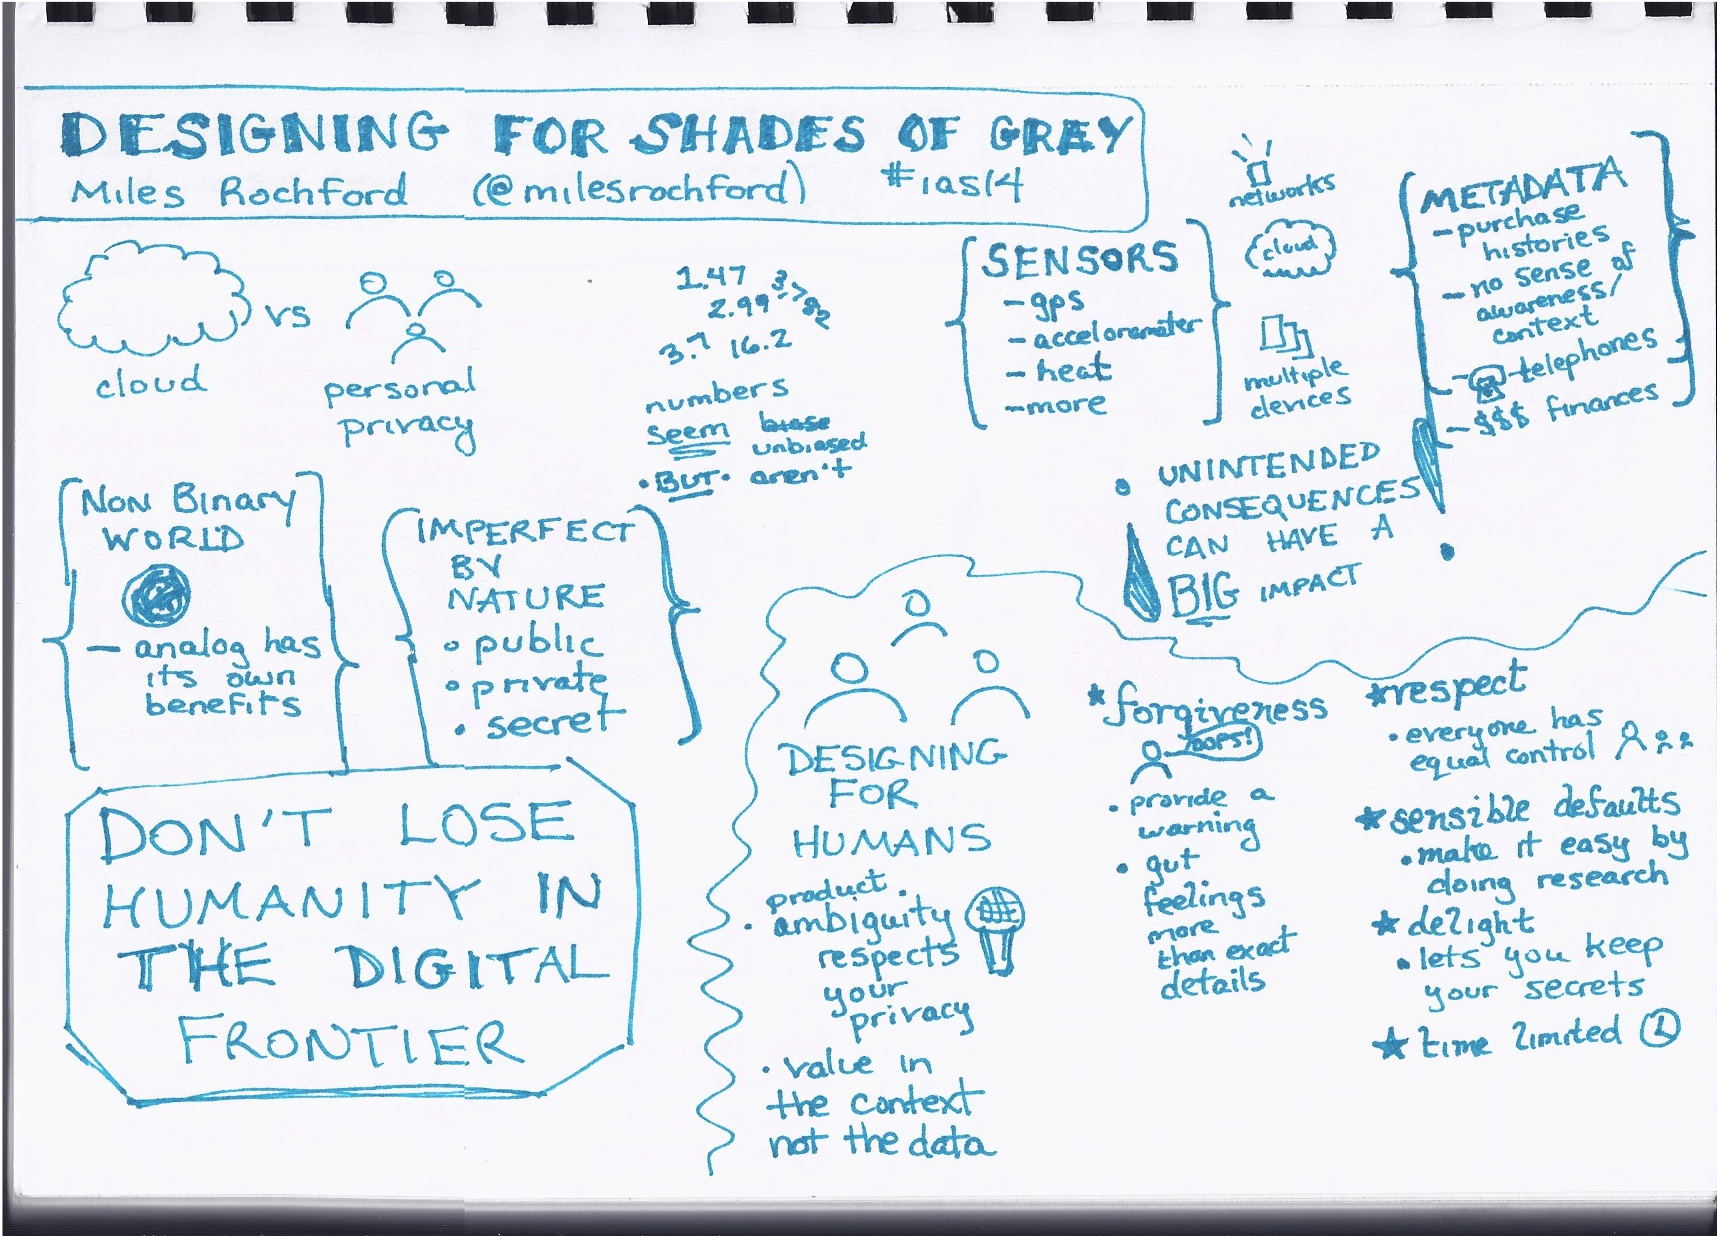 DESIGNING FOR SHADES OF GRAY
Miles Rochford (@milesrochford) #ias14
cloud
vs
personal
privacy
1.47
2.99
3.7 16.2
numbers
seem biase
unbiased
• BUT • aren't
SENSORS
- gps
- acceloramater
- heat
- more
networks
cloud
multiple
devices
METADATA
- purchase
histories
- no sense of
awareness/
context
- telephones
- $$$ finances
UNINTENDED
CONSEQUENCES
CAN HAVE A
BIG IMPACT
NON BINARY
WORLD
- analog has
its own
benefits
IMPERFECT
BY
NATURE
• public
• private
• secret
DON'T LOSE
HUMANITY IN
THE DIGITAL
FRONTIER
DESIGNING
FOR
HUMANS
product
• ambiguity
respects
your
privacy
• value in
the context
not the data
* forgiveness
OOPS!
• provide a
warning
• gut
feelings
more
than exact
details
* respect
• everyone has
equal control
* sensible defaults
• make it easy by
doing research
* delight
• lets you keep
your secrets
* time limited